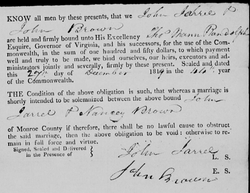 KNOW all men by these presents, that we John Jarrel &
John Brown
are held and firmly bound unto His Excellency Tho: Mann Randolph
Esquire, Governor of Virginia, and his successors, for the use of the Com-
monwealth, in the sum of one hundred and fifty dollars, to which payment
well and truly to be made, we bind ourselves, our heirs, executors and ad-
ministrators jointly and severally, firmly by these presents. Sealed and dated
this 27th day of December 18 46th year
of the Commonwealth.
THE Condition of the above obligation is such, that whereas a marriage is
shortly intended to be solemnized between the above bound John
Jarrel & Nancy Brown
of Monroe County if therefore, there shall be no lawful cause to obstruct
the said marriage, then the above obligation to be void: otherwise to re-
main in full force and virtue.
Signed, Sealed and Delivered
in the Presence of
John Jarrel L. S.
John Brown L. S.